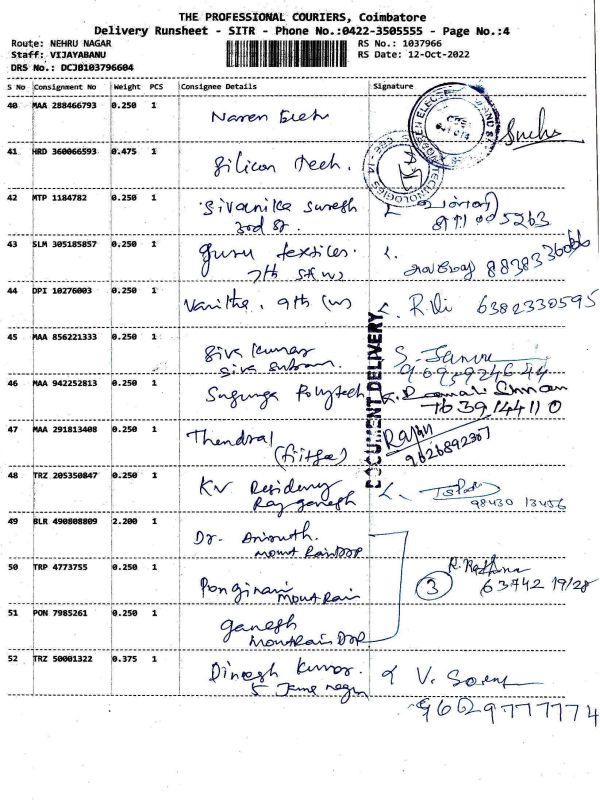 THE PROFESSIONAL COURIERS, Coimbatore
Delivery Runsheet - SITR - Phone No.:0422-3505555 - Page No.:4
Route: NEHRU NAGAR
RS No.: 1037966
Staff: VIJAYABANU
RS Date: 12-Oct-2022
DRS No.: DCJB103796604
S No Consignment No Weight PCS Consignee Details Signature
40 MAA 288466793 0.250 1 Naren
41 HRD 360066593 0.475 1 Silicon Tech.
42 MTP 1184782 0.250 1 Sivanika Suresh
3rd st.
43 SLM 305185857 0.250 1 Guru textiles.
7th
44 DPI 10276003 0.250 1 Vanitha. 9th R. 6382330595
45 MAA 856221333 0.250 1 Siva kumar
Siva
46 MAA 942252813 0.250 1 Suguna Polytech
7639144110
47 MAA 291813408 0.250 1 Thendral Rajan
9626892307
48 TRZ 205350847 0.250 1 KV Residency
Raj ganesh 98430 13456
49 BLR 490808809 2.200 1 Dr. Anirudh.
Mount Rain
50 TRP 4773755 0.250 1 Mount Rain 3 R.
63742 19128
51 PON 7985261 0.250 1 Ganesh
Mount Rain
52 TRZ 50001322 0.375 1 Dinesh Kumar. V.
5 nagar
9629777774
DOCUMENT DELIVERY